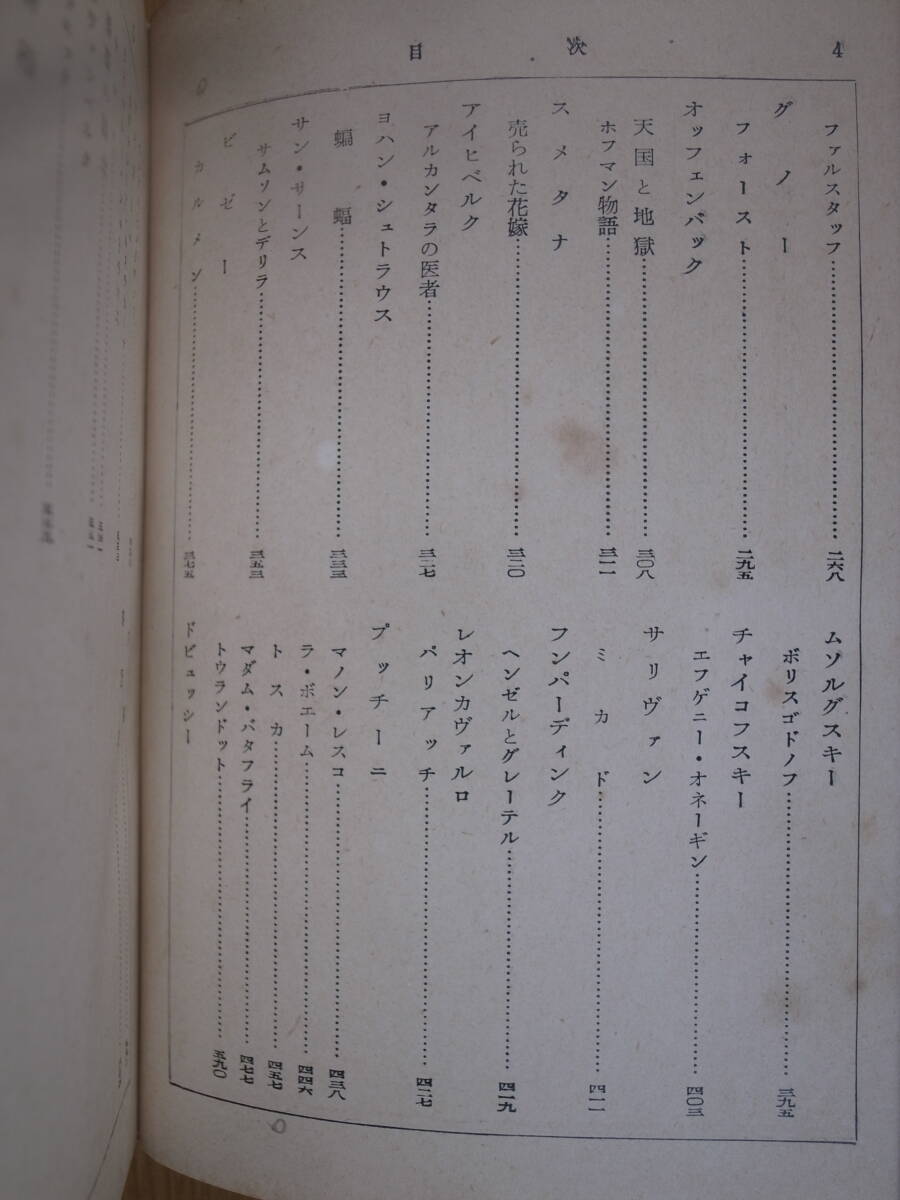 目次 4
ファルスタッフ……二六八
グノー
フォースト……二九五
オッフェンバック
天国と地獄……三〇八
ホフマン物語……三一一
スメタナ
売られた花嫁……三二〇
アイヒベルク
アルカンタラの医者……三二七
ヨハン・シュトラウス
蝙蝠……三三三
サン・サーンス
サムソンとデリラ……三五三
ビゼー
カルメン……三七五
ムソルグスキー
ボリスゴドノフ……三九五
チャイコフスキー
エフゲニー・オネーギン……四〇三
サリヴァン
ミカド……四一一
フンパーディンク
ヘンゼルとグレーテル……四一九
レオンカヴァルロ
パリアッチ……四二七
プッチーニ
マノン・レスコ……四三八
ラ・ボエーム……四四六
トスカ……四五七
マダム・バタフライ……四七七
トウランドット……五九〇
ドビュッシー